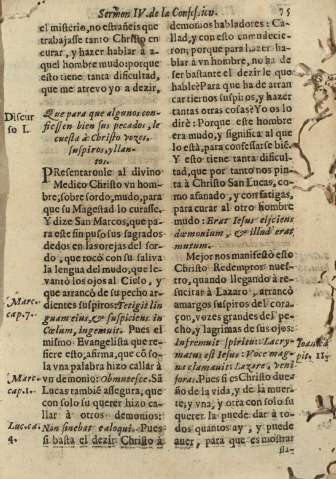 Sermon IV. de la Confession. 75
el misterio, no estuviesis que
trabajasse tanto Christo en
curar, y hazer hablar à a-
quel hombre mudo: porque
esto tiene tanta dificultad,
que me atrevo yo a dezir,
Discur
so I.
Que para que algunos con-
fiessen bien sus pecados, le
cuesta à Christo vozes,
suspiros, y llan-
tos.
PResentaronle al divino
Medico Christo un hom-
bre, sobre sordo, mudo, para
que su Magestad lo curasse.
Y dize San Marcos, que pa-
ra este fin puso sus sagrados
dedos en las orejas del sor-
do, que tocò con su saliva
la lengua del mudo, que le-
vantò los ojos al Cielo, y
que arrancò de su pecho ar-
Marc.
cap. 7.
dientes suspiros: Tetigit lin
guam eius, & suspiciens in
Cœlum, ingemuit. Pues el
mismo Evangelista que re-
fiere esto, afirma, que cõ so-
la vna palabra hizo callar à
Marc.
cap. 1.
vn demonio: Obmutesce. Sã
Lucas tambiẽ assegura, que
con solo su querer hizo ca-
llar à otros demonios:
Luc. ca.
4.
Non sinebat ea loqui. Pues
si basta el dezir Christo à
demonios habladores: Ca-
llad, y con esto enmudecie-
ron; porque para hazer ha-
blar à vn hombre, no ha de
ser bastante el dezirle que
hable? Para que ha de arran
car tiernos suspiros, y hazer
tantas otras cosas? Yo os lo
dirè: Porque este hombre
era mudo, y significa al que
lo està, para confessarse biẽ.
Y esto tiene tanta dificul-
tad, que por tanto nos pin-
ta à Christo San Lucas, co-
mo afanado, y con fatigas,
para curar al otro hombre
mudo: Erat Iesus eijciens
dæmonium, & illud erat
mutum.
Mejor nos manifestò esto
Christo Redemptor nues-
tro, quando llegando à re-
sucitar à Lazaro, arrancò
amargos suspiros del cora-
çon, vozes grandes del pe-
cho, y lagrimas de sus ojos:
Infremuit spiritu: Lacry-
matus est Iesus: Voce mag-
na clamavit: Lazare, veni
foras. Pues si es Christo due
ño de la vida, y de la muer-
te; y vna, y otra con solo su
querer la puede dar à to-
dos quantos ay, y puede
auer, para que es mostrar